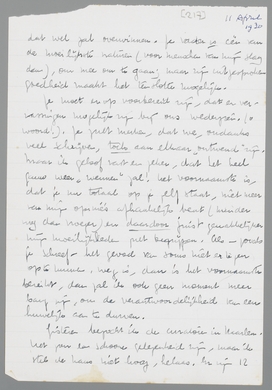 [219] 11 April 1930
dat wel zal overwinnen. Je vader is één van
de moeilijkste naturen (voor menschen van mijn slag
dan), om mee om te gaan; maar mijn uitgesproken
goedheid maakt het ten slotte mogelijk.
Je moet er op voorbereid zijn, dat er ver-
rassingen mogelijk zijn bij ons wederzien (o
woord!). Je zult merken, dat we, ondanks
veel schrijven, toch aan elkaar ontwend zijn.
Maar ik geloof vast en zeker, dat het heel
gauw weer "wennen" zal. Het voornaamste is,
dat je nu totaal op je zelf staat, niet meer
van mijn opinies afhankelijk bent (minder
nog dan vroeger) en daardoor juist gemakkelijker
mijn moeilijkheden zult begrijpen. Als – zooals
je schreef – het gevoel van soms niet vrij zijn
op te kunnen, weg is, dan is het voornaamste
bereikt, dan zal ik ook geen moment meer
bang zijn, om de verantwoordelijkheid van een
huwelijk aan te durven.
Gisteren bezocht ik de curatoren in Haarlem.
Het zou een schoone gelegenheid zijn, maar ik
stel de kans niet hoog, helaas. Er zijn 12